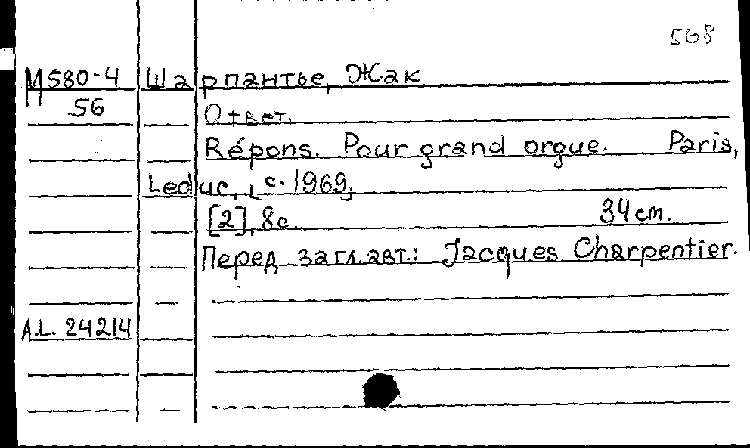 568
М580-4 Шарпантье, Жак
56 Ответ.
Répons. Pour grand orgue. Paris,
Leduc, [с. 1969]
[2], 8с. 34 cm.
Перед загл. авт.: Jacques Charpentier.
A.L. 24214